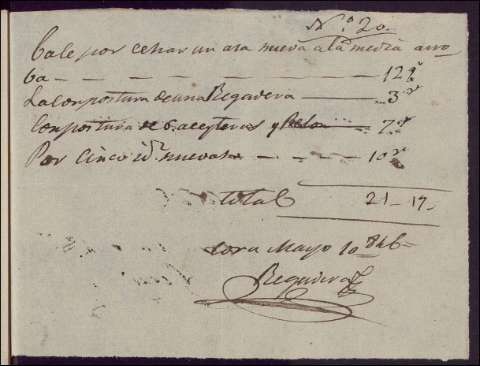 Nº 20.
Cale por echar un asa nueva a la media arro
ba — — — — — — 12 rˢ
La Conpostura de una Regadera — 3 rˢ
Conpostura de 6. aceyteros y — 7 rˢ
Por Cinco idˢ nuevas — — — 10 rˢ
total 21 — 17
Mayo 10 846
Reguera